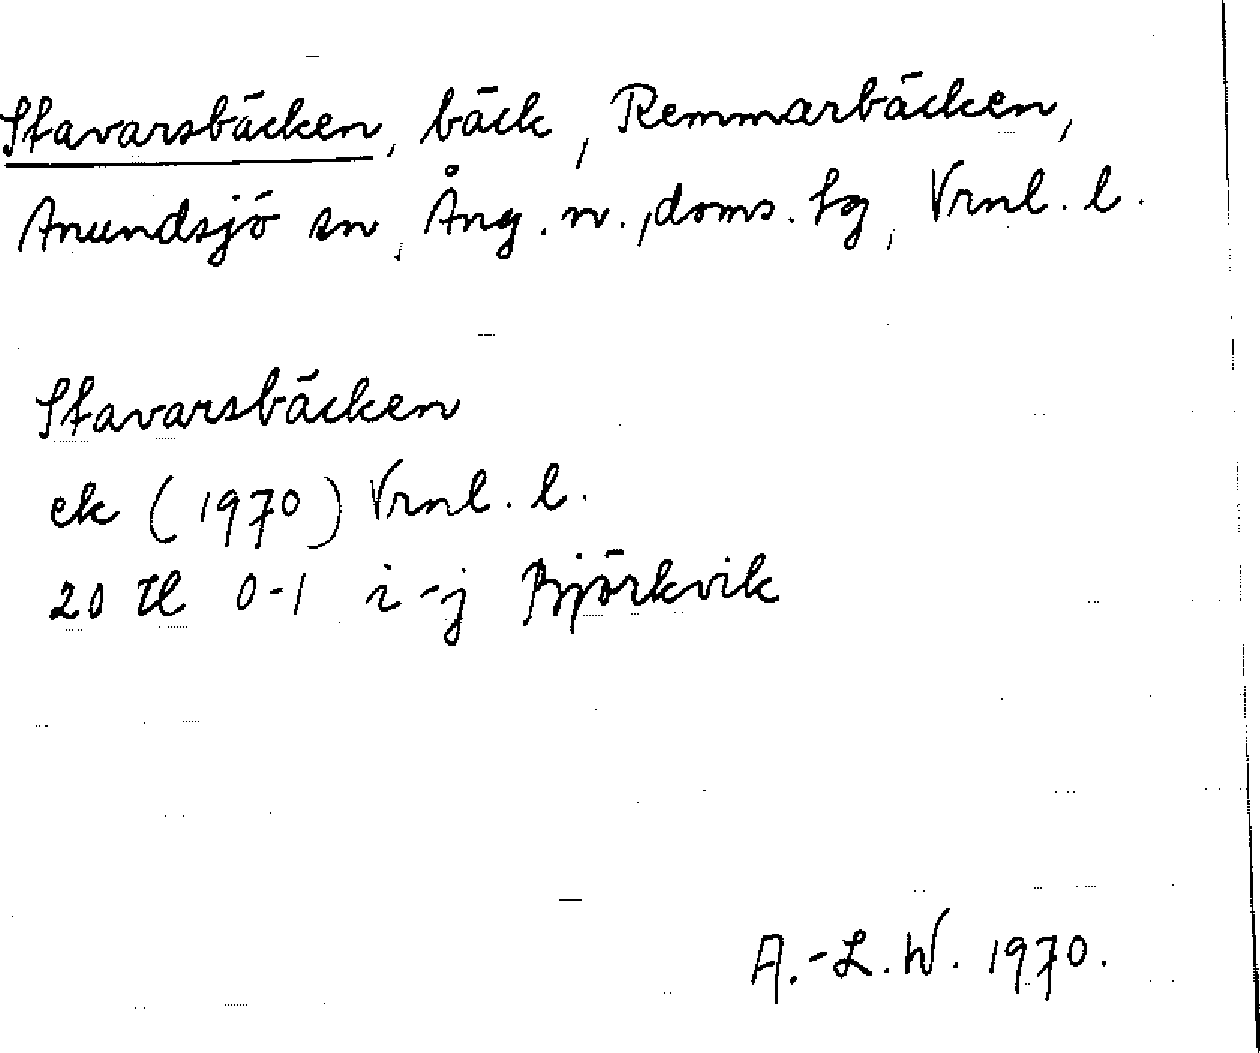 Stavarsbäcken, bäck, Remmarbäcken,
Anundsjö sn, Ång. n., doms. tg, Vrnl. l.
Stavarsbäcken
ek (1970) Vrnl. l.
20 Il 0-1 i-j Björkvik
A.-L.W. 1970.